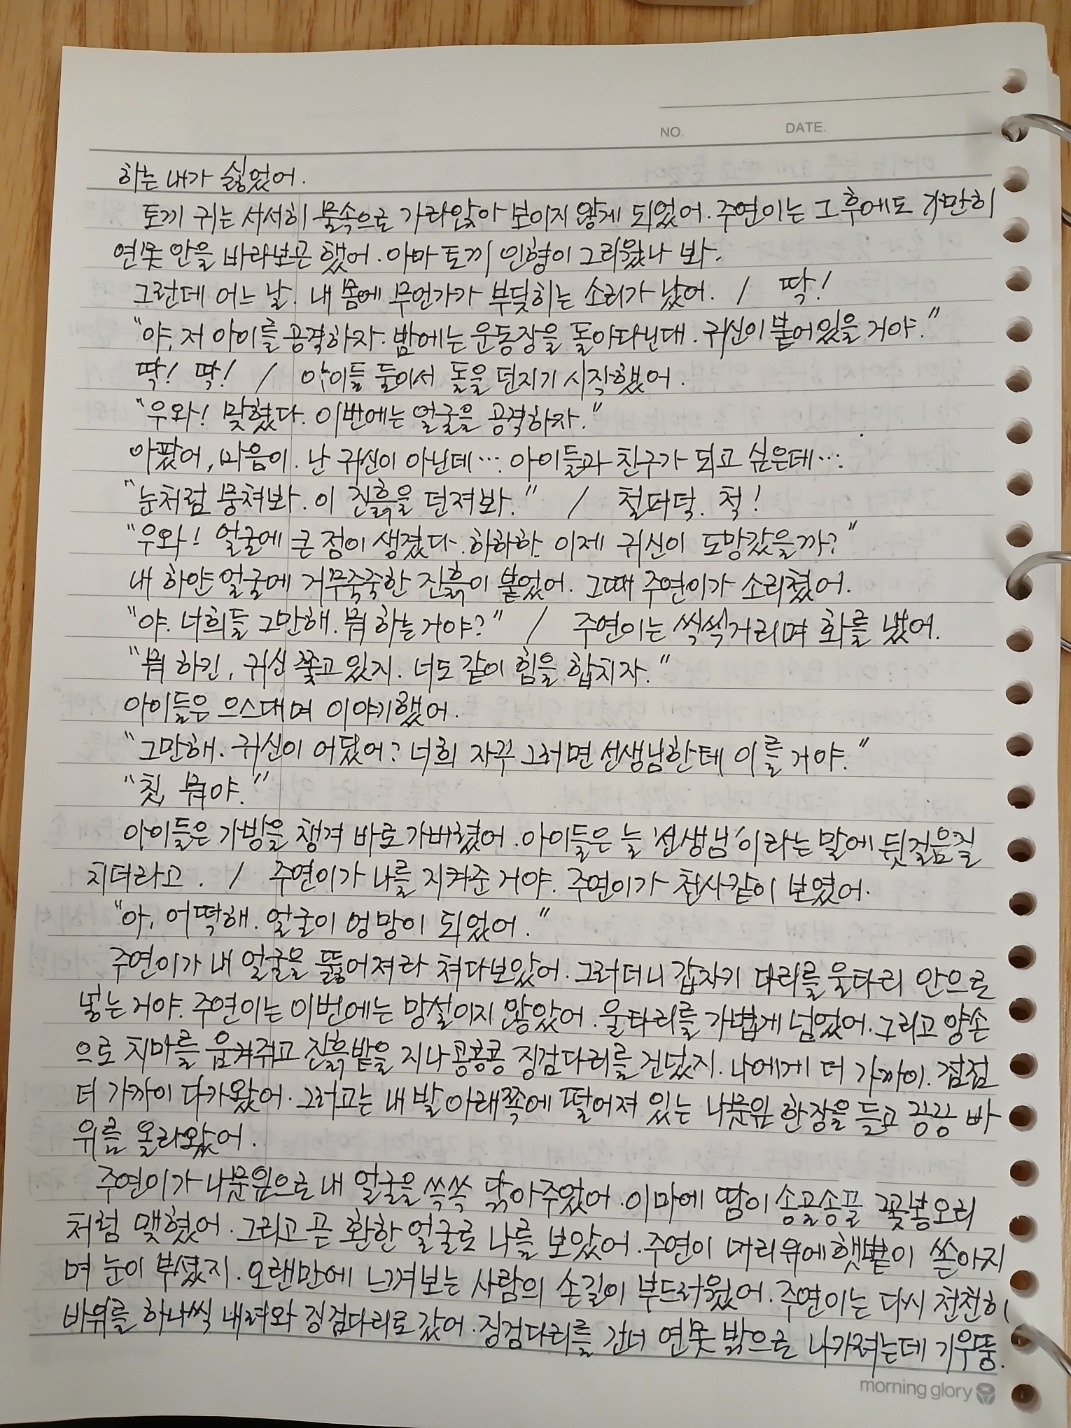 NO. DATE.
하는 내가 싫었어.
토끼 귀는 서서히 물속으로 가라앉아 보이지 않게 되었어. 주연이는 그 후에도 가만히
연못 안을 바라보곤 했어. 아마 토끼 인형이 그리웠나 봐.
그런데 어느 날. 내 몸에 무언가가 부딪히는 소리가 났어. / 딱!
"야, 저 아이를 공격하자. 밤에는 운동장을 돌아다닌대. 귀신이 붙어있을 거야."
딱! 딱! / 아이들 둘이서 돌을 던지기 시작했어.
"우와! 맞혔다. 이번에는 얼굴을 공격하자."
아팠어, 마음이. 난 귀신이 아닌데… 아이들과 친구가 되고 싶은데….
"눈처럼 뭉쳐봐. 이 진흙을 던져봐." / 철퍼덕. 척!
"우와! 얼굴에 큰 점이 생겼다. 하하하. 이제 귀신이 도망갔을까?"
내 하얀 얼굴에 거무죽죽한 진흙이 붙었어. 그때 주연이가 소리쳤어.
"야. 너희들 그만해. 뭐 하는 거야?" / 주연이는 씩씩거리며 화를 냈어.
"뭐 하긴, 귀신 쫓고 있지. 너도 같이 힘을 합치자."
아이들은 으스대며 이야기했어.
"그만해. 귀신이 어딨어? 너희 자꾸 그러면 선생님한테 이를 거야."
"칫, 뭐야."
아이들은 가방을 챙겨 바로 가버렸어. 아이들은 늘 '선생님'이라는 말에 뒷걸음질
치더라고. / 주연이가 나를 지켜준 거야. 주연이가 천사같이 보였어.
"아, 어떡해. 얼굴이 엉망이 되었어."
주연이가 내 얼굴을 뚫어져라 쳐다보았어. 그러더니 갑자기 다리를 울타리 안으로
넣는 거야. 주연이는 이번에는 망설이지 않았어. 울타리를 가볍게 넘었어. 그리고 양손
으로 치마를 움켜쥐고 진흙밭을 지나 콩콩콩 징검다리를 건넜지. 나에게 더 가까이. 점점
더 가까이 다가왔어. 그러고는 내 발 아래쪽에 떨어져 있는 나뭇잎 한장을 들고 끙끙 바
위를 올라왔어.
주연이가 나뭇잎으로 내 얼굴을 쓱쓱 닦아주었어. 이마에 땀이 송골송골 꽃봉오리
처럼 맺혔어. 그리곤 환한 얼굴로 나를 보았어. 주연이 머리위에 햇볕이 쏟아지
며 눈이 부셨지. 오랜만에 느껴보는 사람의 손길이 부드러웠어. 주연이는 다시 천천히
바위를 하나씩 내려와 징검다리로 갔어. 징검다리를 건너 연못 밖으로 나가려는데 기우뚱.
morning glory